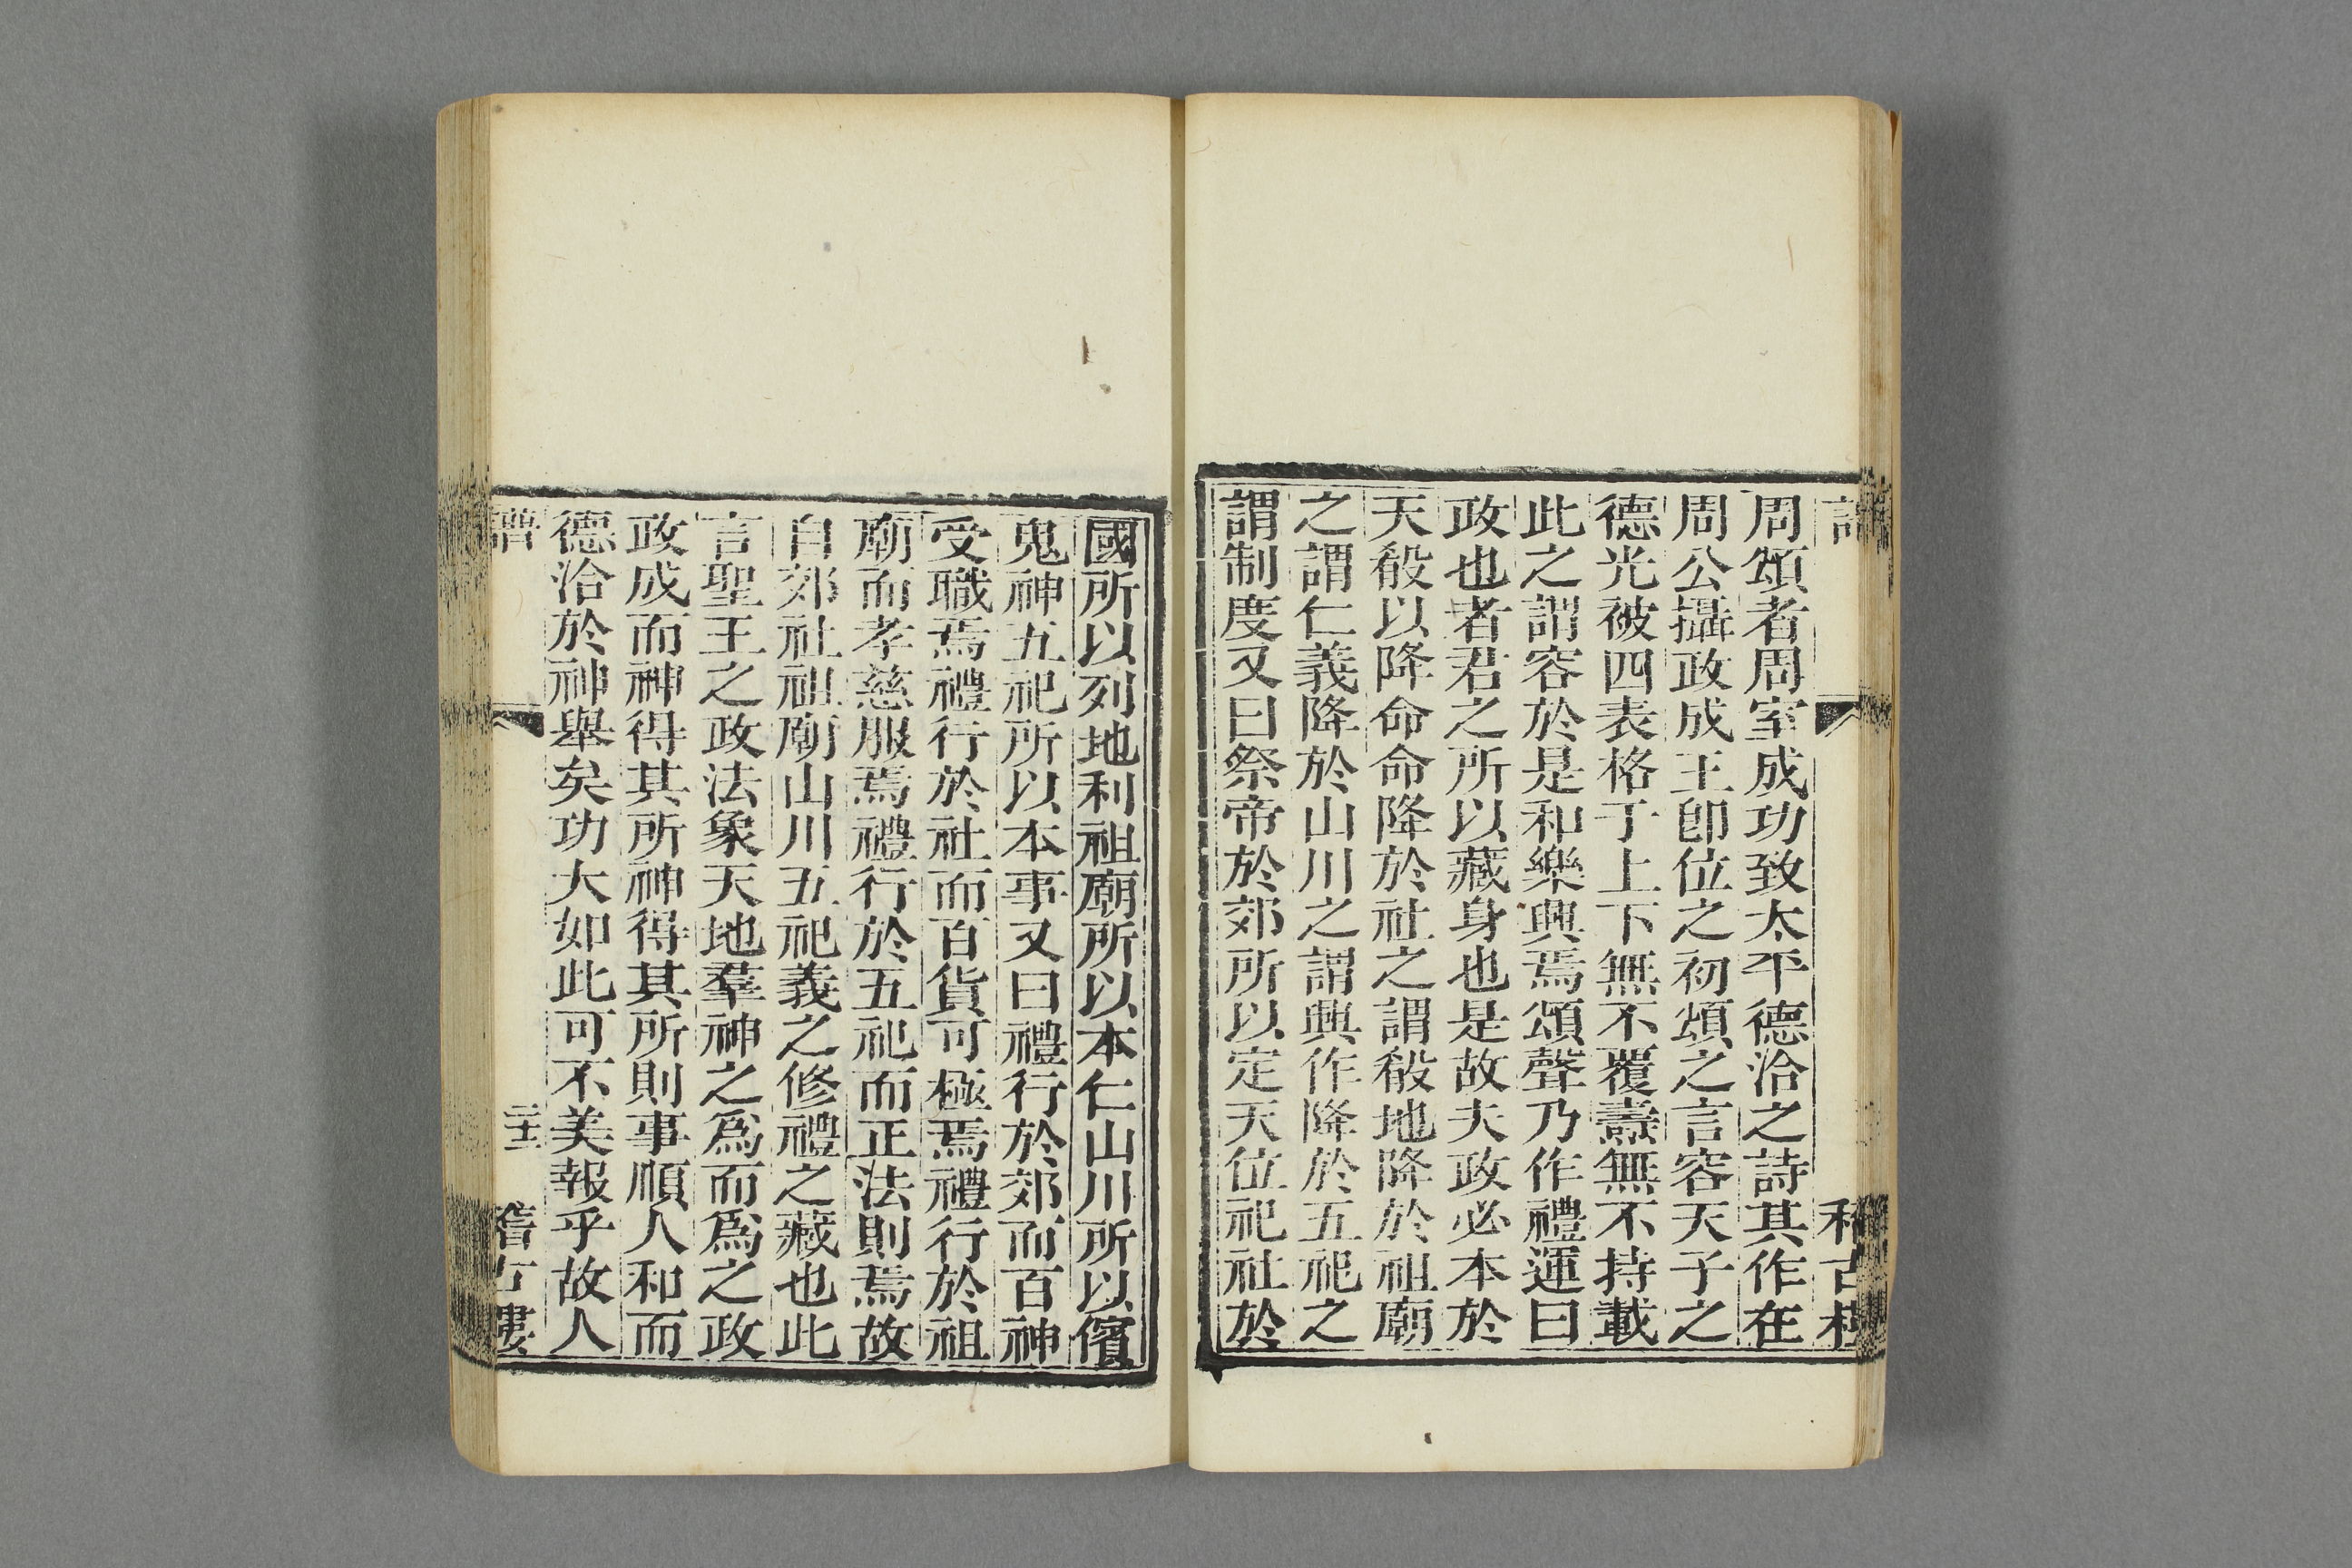 周頌者周室成功致太平德洽之詩其作在
周公攝政成王卽位之初頌之言容天子之
德光被四表格于上下無不覆燾無不持載
此之謂容於是和樂興焉頌聲乃作禮運曰
政也者君之所以藏身也是故夫政必本於
天殽以降命命降於社之謂殽地降於祖廟
之謂仁義降於山川之謂興作降於五祀之
謂制度又曰祭帝於郊所以定天位祀社於
國所以列地利祖廟所以本仁山川所以儐
鬼神五祀所以本事又曰禮行於郊而百神
受職焉禮行於社而百貨可極焉禮行於祖
廟而孝慈服焉禮行於五祀而正法則焉故
自郊社祖廟山川五祀義之修禮之藏也此
言聖王之政法象天地羣神之爲而爲之政
政成而神得其所神得其所則事順人和而
德洽於神舉矣功大如此可不美報乎故人
譜